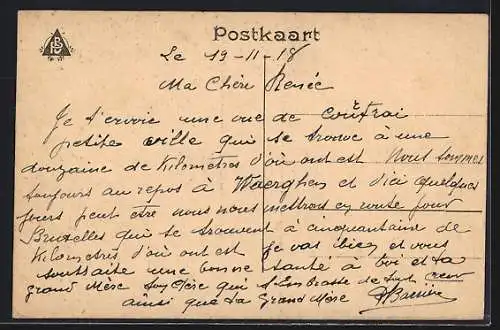 Postkaart
Le 19-11-18
Ma Chère Renée
Je t'envoie une vue de Coutrai
petite ville qui se trouve à une
douzaine de Kilometres d'où ont est Nous sommes
toujours au repos à Waerghem et d'ici quelques
jours peut être nous nous mettrons en route pour
Bruxelles qui se trouvent à cinquantaine de
Kilometres d'où ont est je vas bien et vous
souhaite une bonne santé à toi et ta
grand Mère ton Père qui t'embrasse de tout cœur
ainsi que ta Grand Mère